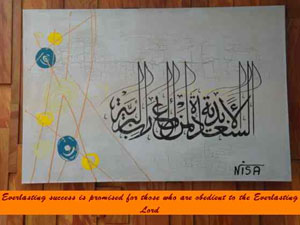 السعادة الأبدية لمن أطاع
NISA
Everlasting success is promised for those who are obedient to the Everlasting
Lord